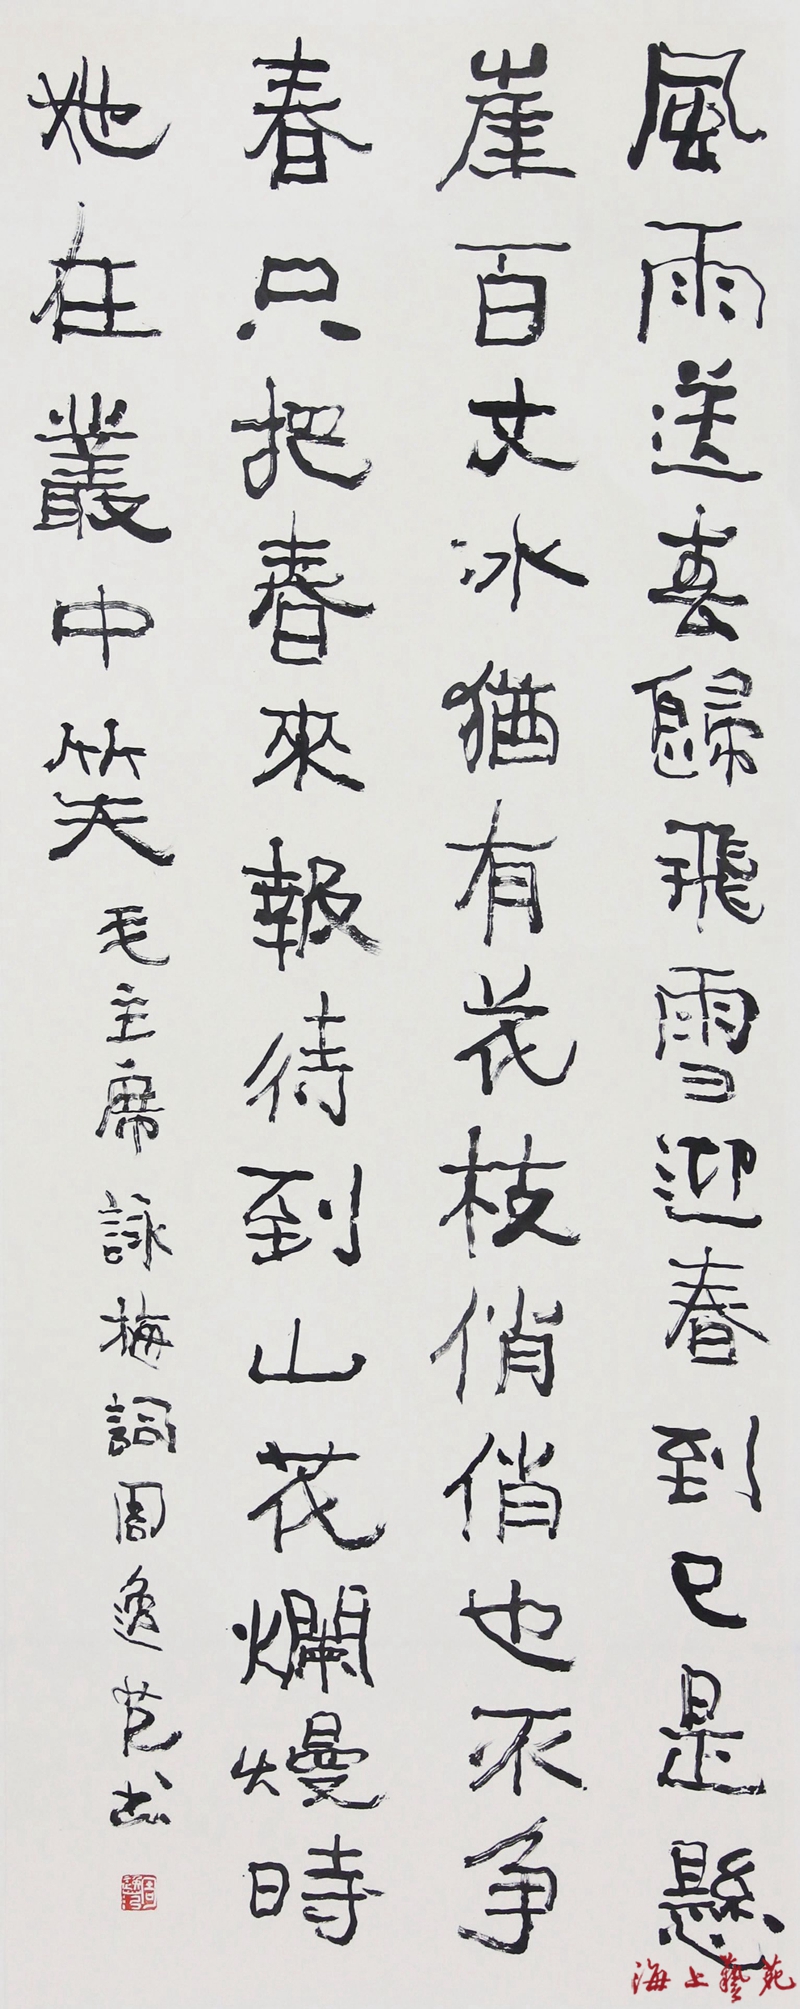 風雨送春歸飛雪迎春到已是懸
崖百丈冰猶有花枝俏俏也不争
春只把春來報待到山花爛熳時
她在叢中笑毛主席詠梅詞周逸范书
海上藝苑